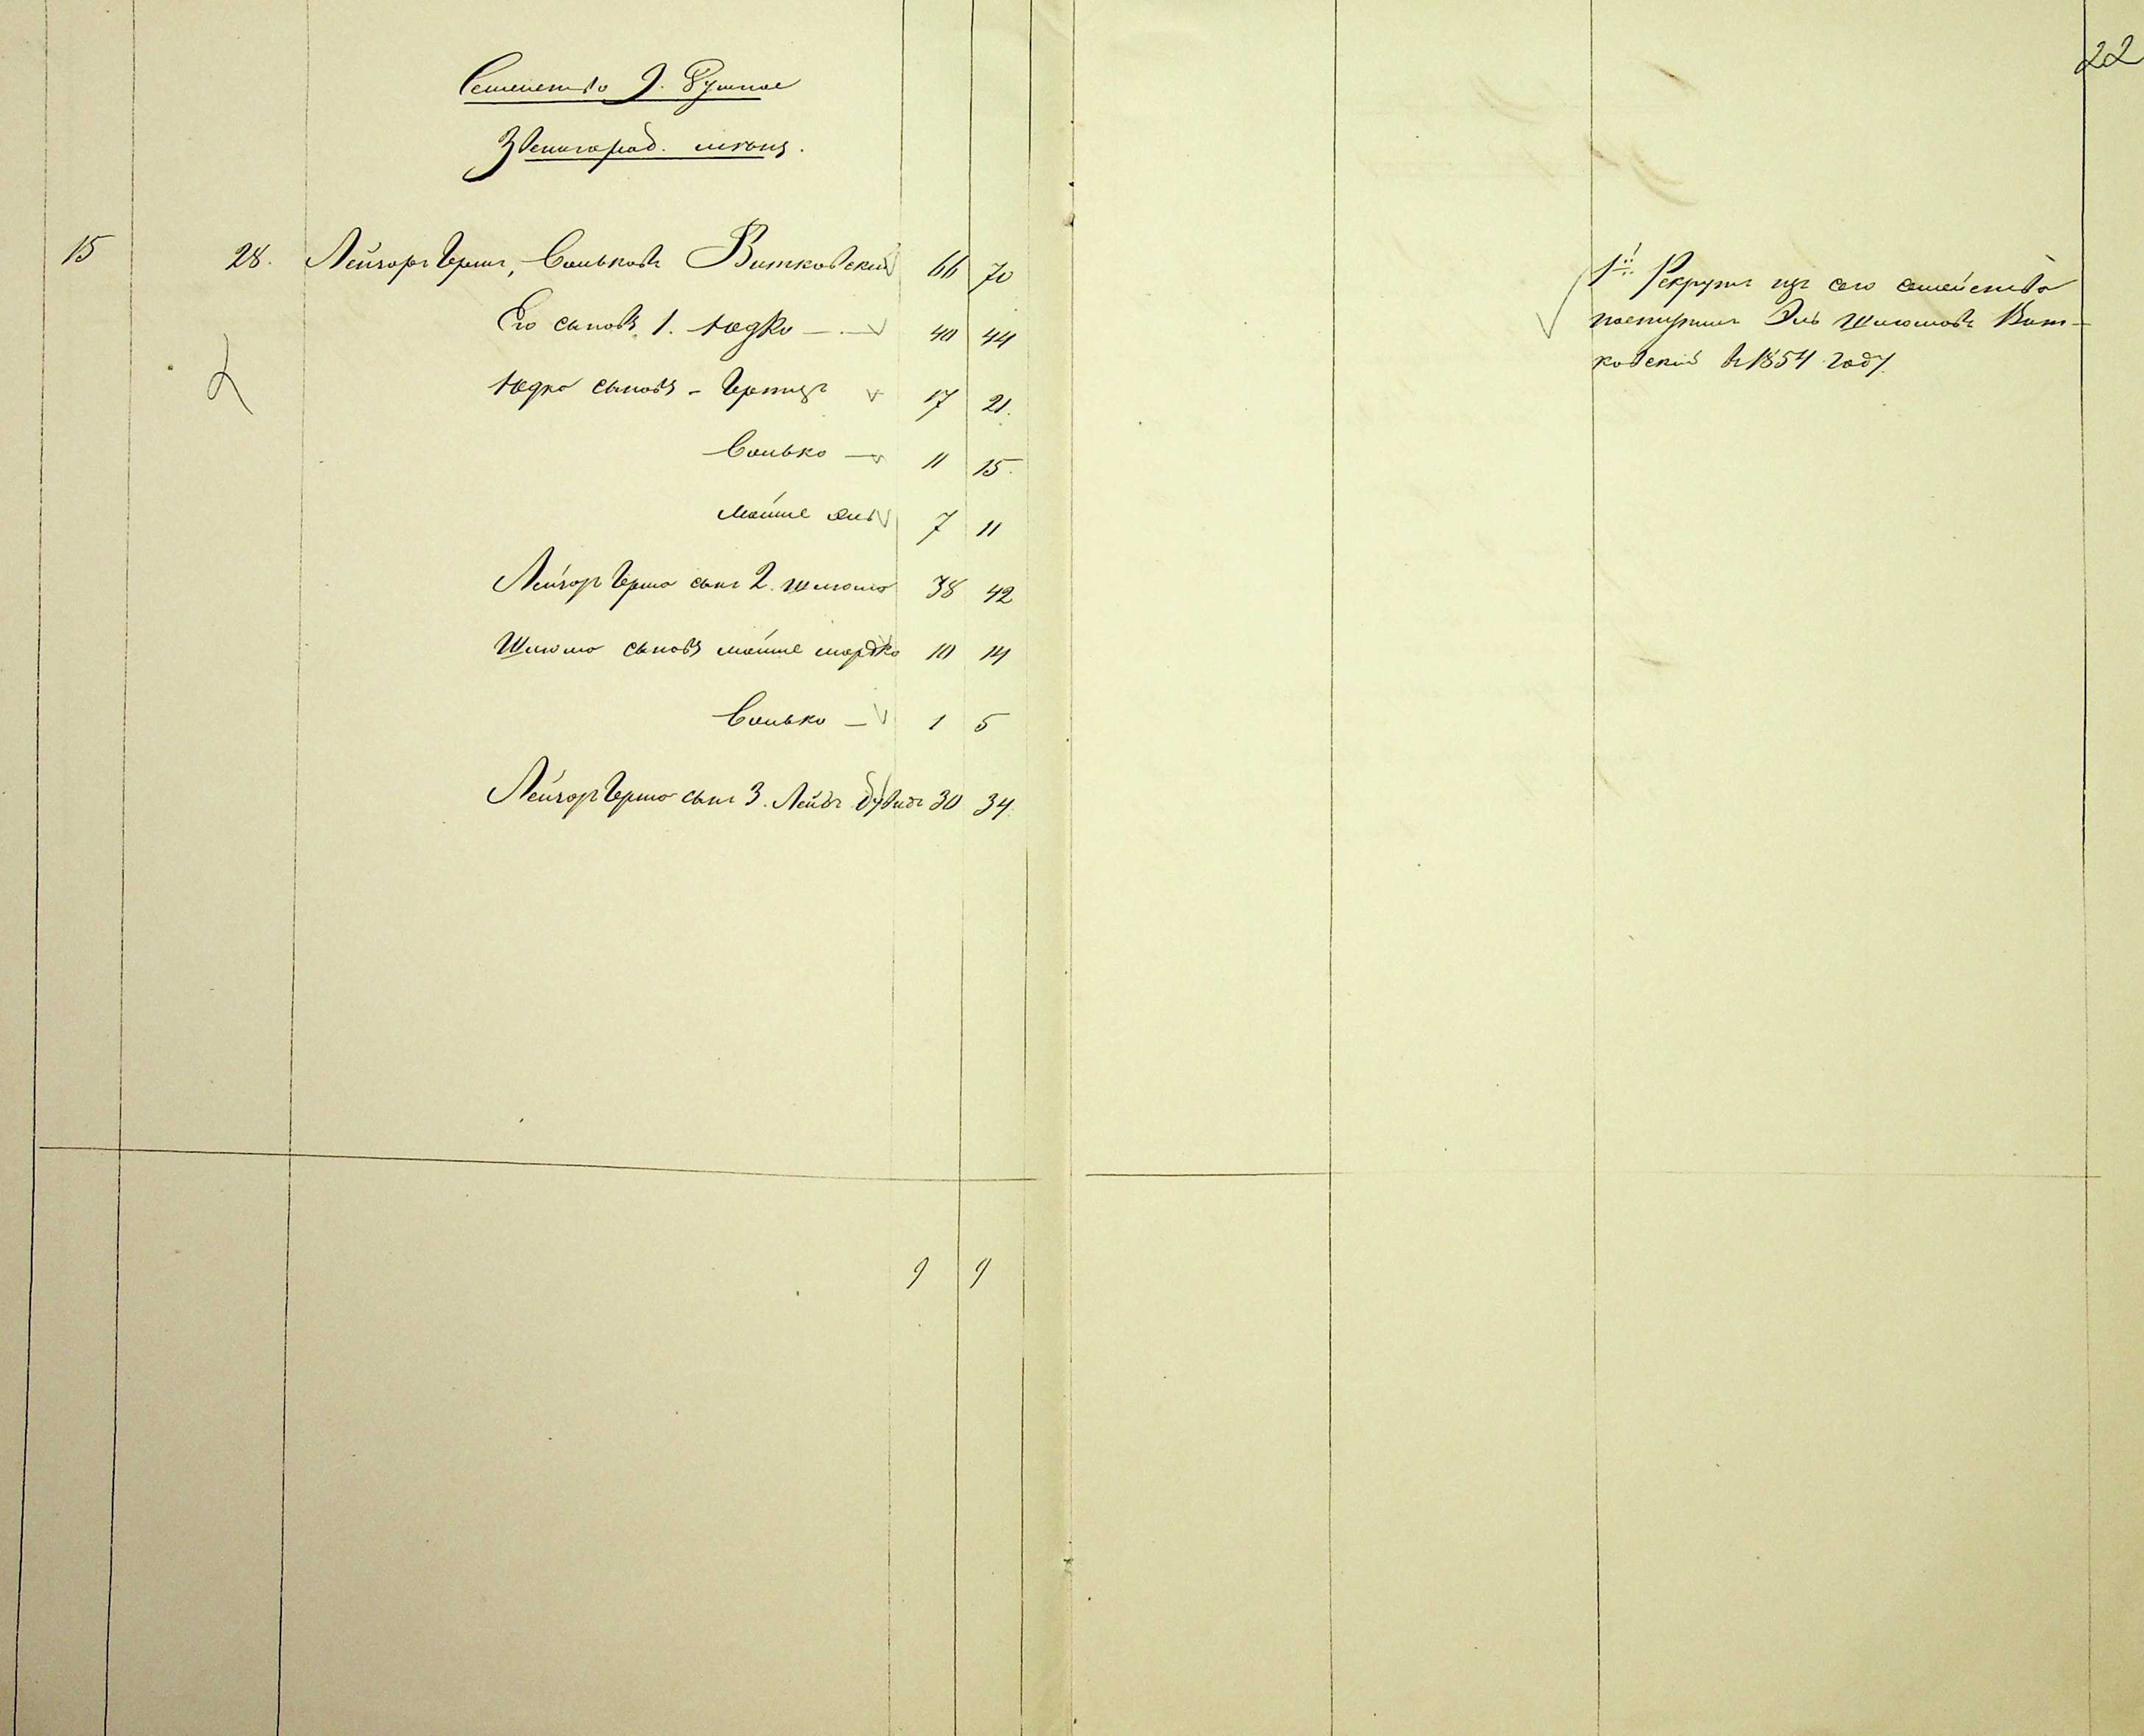 22
Семейство 9. Душное
Звенигород. мѣщан.
15 28. Лейзоръ Гершъ, Вольковъ Витковский 66 70
Его сыновя. 1. Юдко 40 44
Юдко сыновя - Герши 17 21.
Волько 11 15.
Мойше 7 11
Лейзоръ Герша сынъ 2. Шлиома 38 42
Шлиома сыновя Мойше Мордко 10 14
Волько 1 5
Лейзоръ Герша сынъ 3. Лейбъ Дувидъ 30 34
9 9
1й. Рекрутъ изъ сего семейства
поступилъ Эль Шлиомовъ Вит-
ковский въ 1854 году.